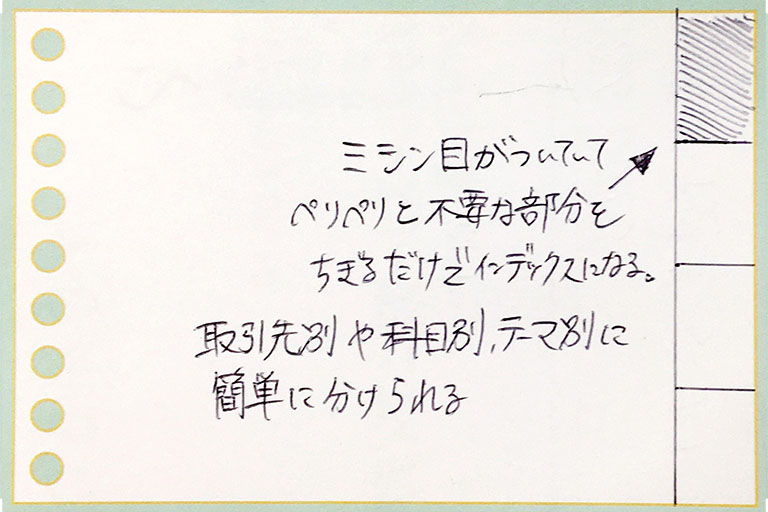 ミシン目がついていて
ペリペリと不要な部分を
ちぎるだけでインデックスになる。
取引先別や科目別、テーマ別に
簡単に分けられる